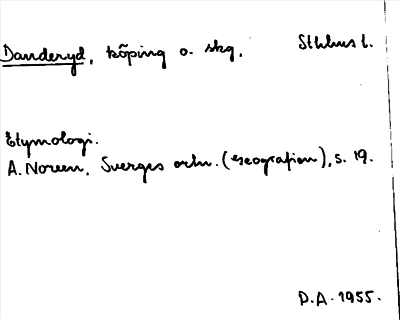 Danderyd, köping o. skg. Sthlms l.
Etymologi.
A. Noreen, Sverges ortn. (Geografien), s. 19.
D.A. 1955.